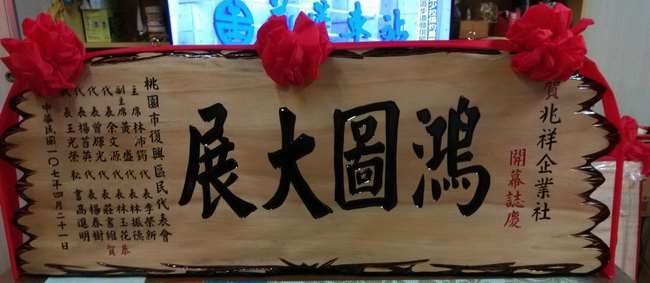 賀兆祥企業社
開幕誌慶
鴻圖大展
桃園市復興區民代表會
主席林沛筠
副主席黃盛
代表余文源
代表曾輝光
代表楊首英
代表王光榮
代表李榮新
代表林振德
代表林玉花
代表莊書維
代表楊春樹
秘書高進明
恭賀
中華民國一〇七年四月二十一日